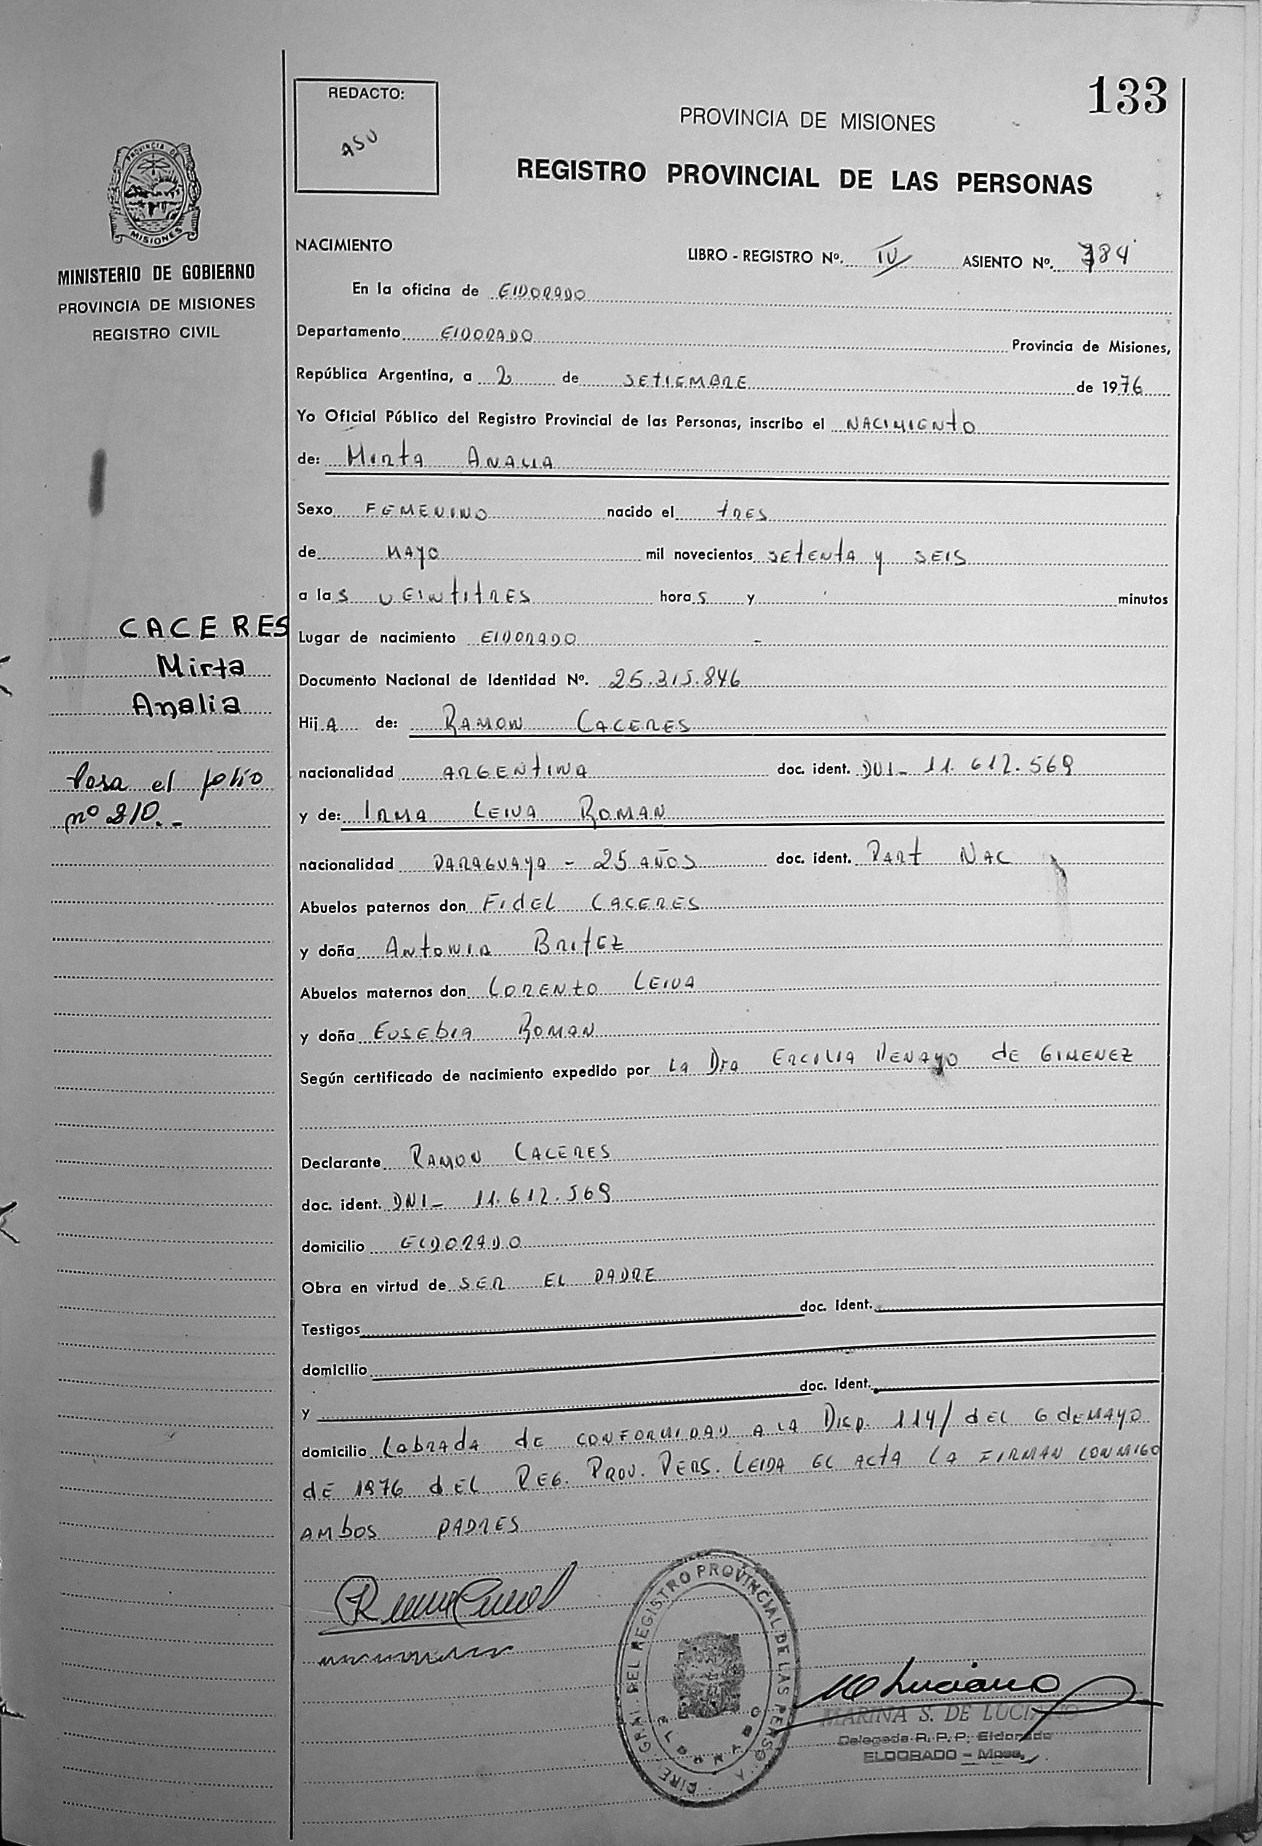 133
REDACTO:
ASU
PROVINCIA DE MISIONES
REGISTRO PROVINCIAL DE LAS PERSONAS
PROVINCIA DE
MISIONES
MINISTERIO DE GOBIERNO
PROVINCIA DE MISIONES
REGISTRO CIVIL
NACIMIENTO LIBRO - REGISTRO Nº. IV ASIENTO Nº. 784
En la oficina de ElDORADO
Departamento ElDORADO Provincia de Misiones,
República Argentina, a 2 de SETIEMBRE de 1976
Yo Oficial Público del Registro Provincial de las Personas, inscribo el NACIMIENTO
de: Mirta ANALIA
Sexo FEMENINO nacido el tRES
de MAYO mil novecientos SETENTA y SEIS
a las VEINTITRES horas y minutos
CACERES
Mirta
Analia
Lugar de nacimiento ElDORADO
Documento Nacional de Identidad Nº. 25.315.846
HijA de: RAMON CACERES
Pasa el folio
nº 210.-
nacionalidad ARGENTINA doc. ident. DNI- 11.612.569
y de: IRMA LEIVA ROMAN
nacionalidad PARAGUAYA - 25 AÑOS doc. ident. PART NAC
Abuelos paternos don FIDEL CACERES
y doña ANTONIA BRITEZ
Abuelos maternos don LORENTO LEIVA
y doña EUSEBIA ROMAN
Según certificado de nacimiento expedido por LA Dra ERCILIA DENAYO de GIMENEZ
Declarante RAMON CACERES
doc. ident. DNI- 11.612.569
domicilio ElDORADO
Obra en virtud de SER EL PADRE
Testigos doc. ident.
domicilio
y doc. ident.
domicilio LabRADA de CONFORMIDAD A LA DISP. 114/ dEL 6 de MAYO
dE 1976 dEL REG. PROV. PERS. LEIDA EL ACTA LA FIRMAN CONMIGO
AMbOS PADRES
DIRE. GRAL. DEL REGISTRO PROVINCIAL DE LAS PERSO
ELDORADO
M Luciano
MARINA S. DE LUCIANO
Delegada R. P. P. Eldorado
ELDORADO - Mnes.